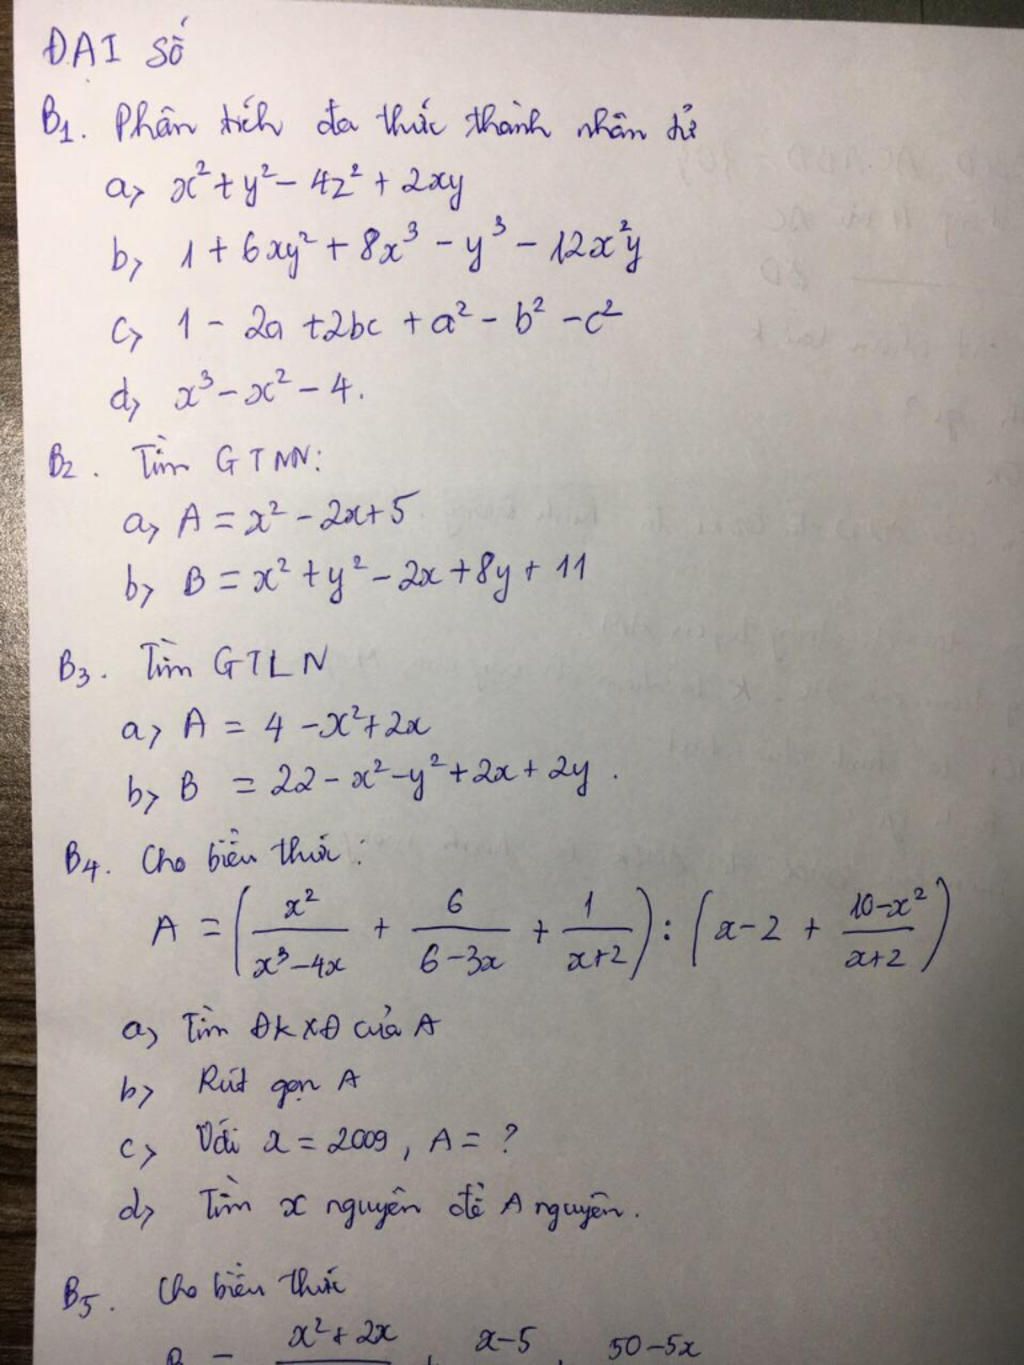 ĐẠI SỐ
B1. Phân tích đa thức thành nhân tử
a, x² + y² - 4z² + 2xy
b, 1 + 6xy² + 8x³ - y³ - 12x²y
c, 1 - 2a + 2bc + a² - b² - c²
d, x³ - x² - 4.
B2. Tìm GTNN:
a, A = x² - 2x + 5
b, B = x² + y² - 2x + 8y + 11
B3. Tìm GTLN
a, A = 4 - x² + 2x
b, B = 22 - x² - y² + 2x + 2y.
B4. Cho biểu thức:
A = (x²/(x³-4x) + 6/(6-3x) + 1/(x+2)) : (x-2 + (10-x²)/(x+2))
a, Tìm ĐKXĐ của A
b, Rút gọn A
c, Với x = 2009, A = ?
d, Tìm x nguyên để A nguyên.
B5. Cho biểu thức
x² + 2x x-5 50-5x